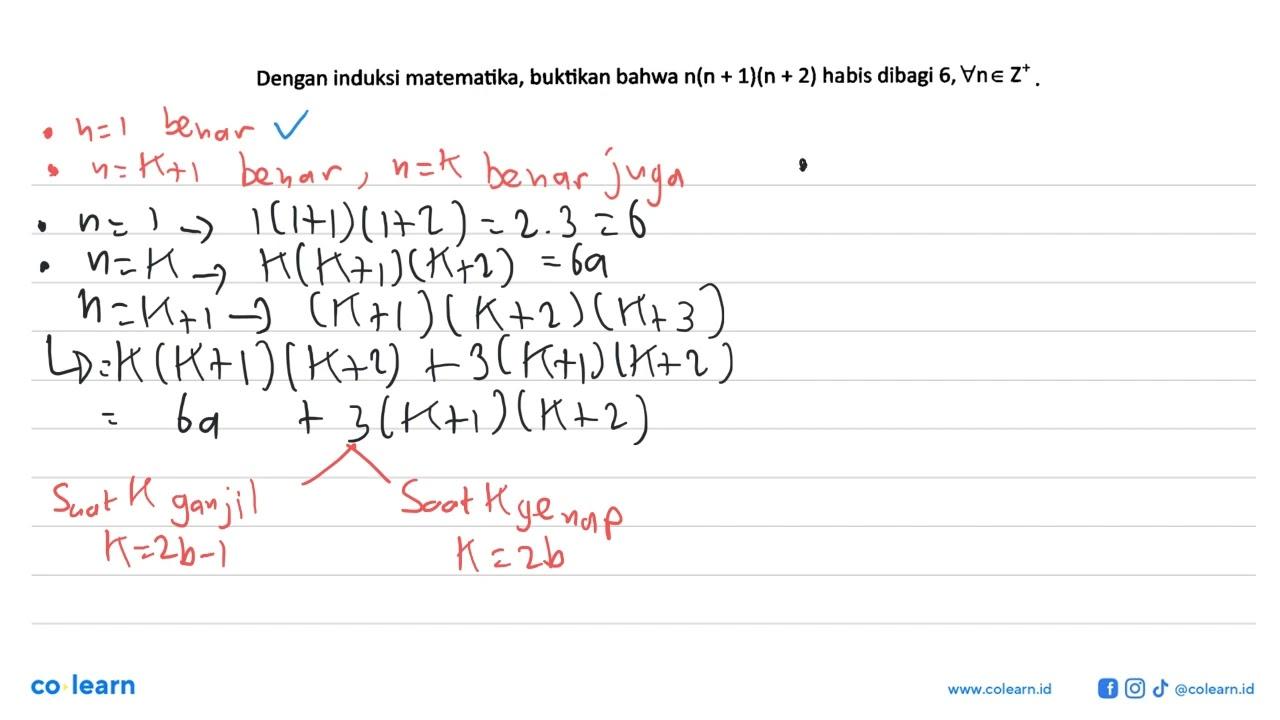 Dengan induksi matematika, buktikan bahwa n(n + 1)(n + 2) habis dibagi 6, ∀n ∈ Z⁺ .
• n=1 benar ✓
• n=K+1 benar, n=K benar juga
• n=1 → 1(1+1)(1+2) = 2.3 = 6
• n=K → K(K+1)(K+2) = 6a
n=K+1 → (K+1)(K+2)(K+3)
↳ = K(K+1)(K+2) + 3(K+1)(K+2)
= 6a + 3(K+1)(K+2)
Saat K ganjil Saat K genap
K=2b-1 K=2b
co learn www.colearn.id @colearn.id